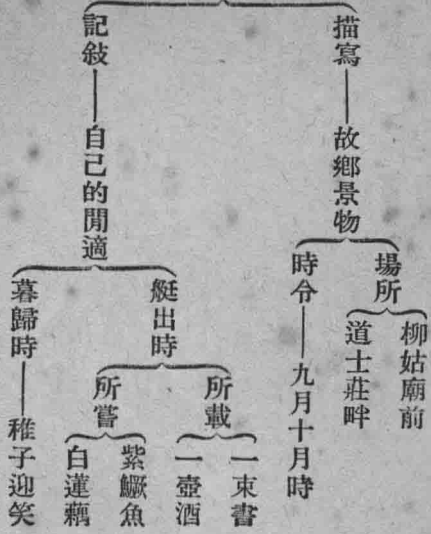 描寫——故鄉景物
場所
柳姑廟前
道士莊畔
時令——九月十月時
記敍——自己的閒適
艇出時
所載
一束書
一壺酒
所嘗
紫鱖魚
白蓮藕
暮歸時——稚子迎笑